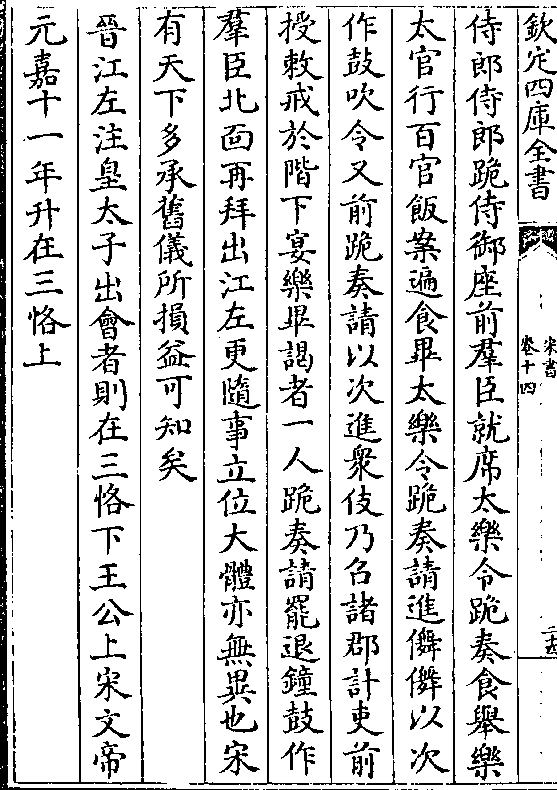 欽定四庫全書
宋書
卷十四
侍郎侍郎跪侍御座前羣臣就席太樂令跪奏食舉樂
太官行百官飯案遍食畢太樂令跪奏請進儛儛以次
作鼓吹令又前跪奏請以次進衆伎乃召諸郡計吏前
授敕戒於階下宴樂畢謁者一人跪奏請罷退鐘鼓作
羣臣北面再拜出江左更隨事立位大體亦無異也宋
有天下多承舊儀所損益可知矣
晉江左注皇太子出會者則在三恪下王公上宋文帝
元嘉十一年升在三恪上